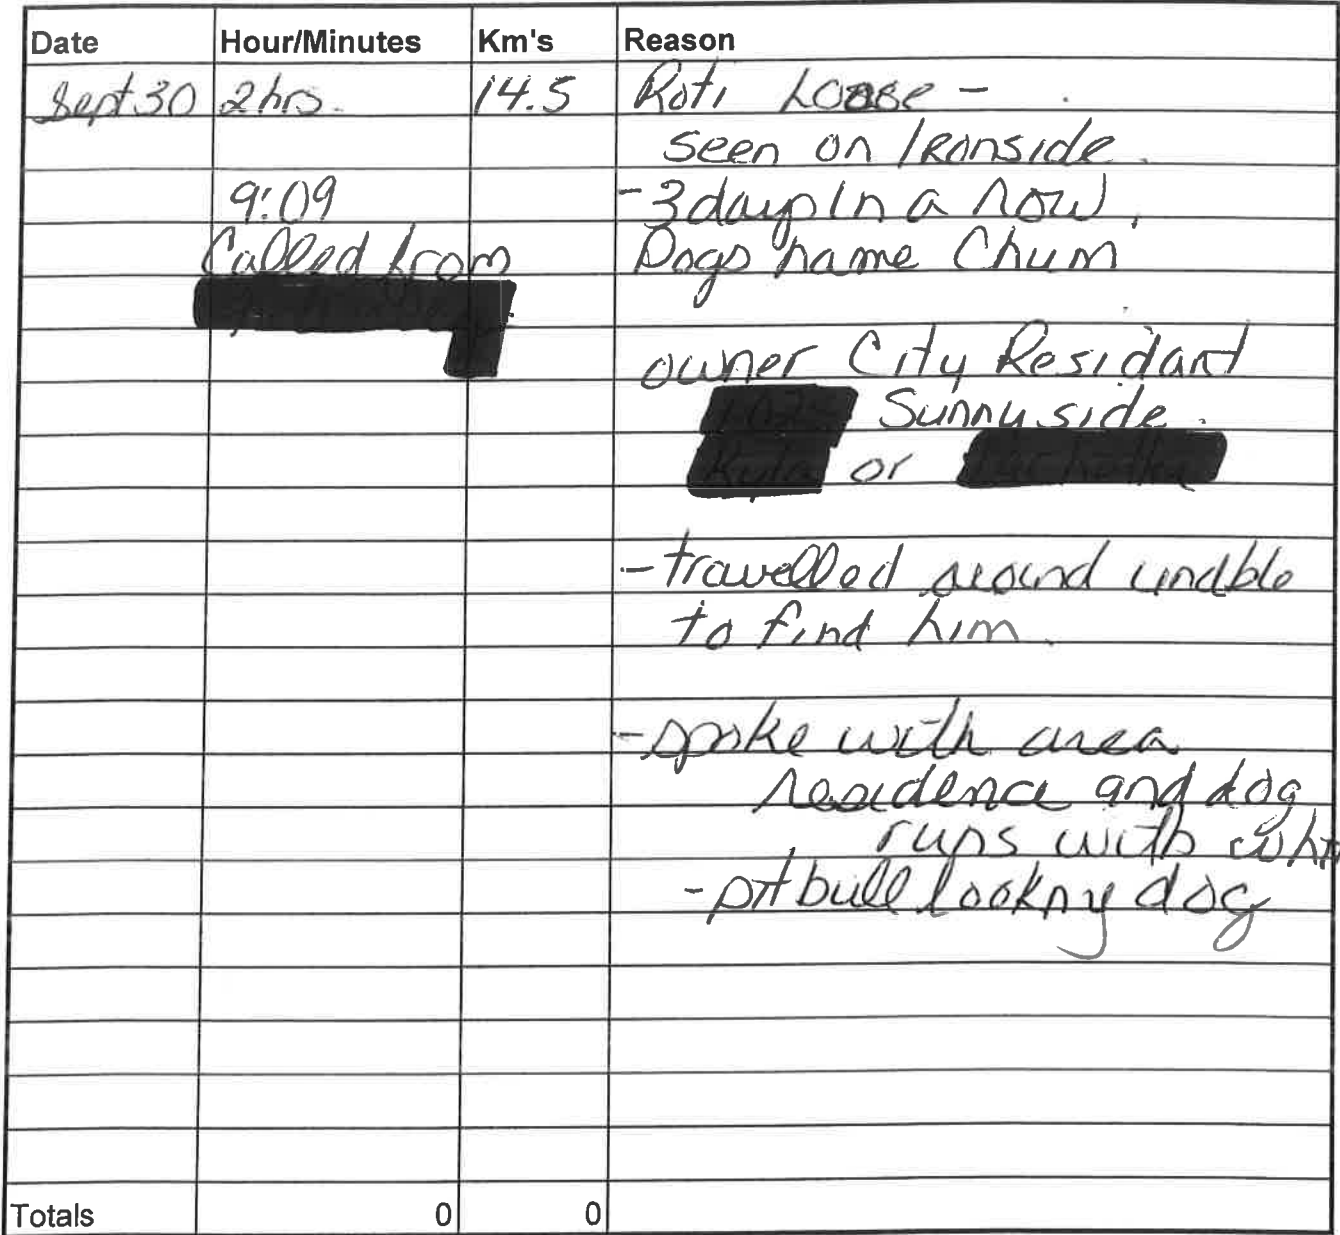 Date Hour/Minutes Km's Reason
Sept 30 2 hrs. 14.5 Roti Loose -
seen on Ironside.
9:09 - 3 days in a row,
Called from Dogs name Chum
owner City Residant
Sunnyside.
or
- travelled around unable
to find him.
- spoke with area
residence and dog
runs with
- pitbull lookny dog
Totals 0 0